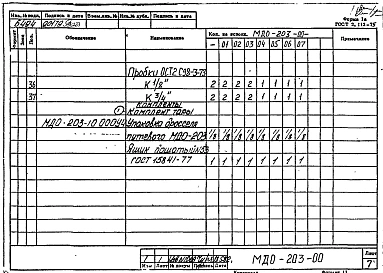 Инв. № подл. Подпись и дата Взам. инв. № Инв. № дубл. Подпись и дата
Форма 1а
ГОСТ 2.113-75
Поз. Обозначение Наименование Кол. на исполн. МДО-203-00- Примечание
- 01 02 03 04 05 06 07
Пробки ОСТ2 С98-3-73
36 К 1/8" 2 2 2 2 1 1 1 1
37 К 3/4" 2 2 2 2 1 1 1 1
Комплекты
Комплект тары
МДО-203-10 000УЧ Упаковка дросселя
путевого МДО-203 1/8 1/8 1/8 1/8 1/8 1/8 1/8 1/8
Ящик дощатый
ГОСТ 15841-77 1 1 1 1 1 1 1 1
МДО-203-00
Лист
7
Изм Лист № докум Подпись Дата